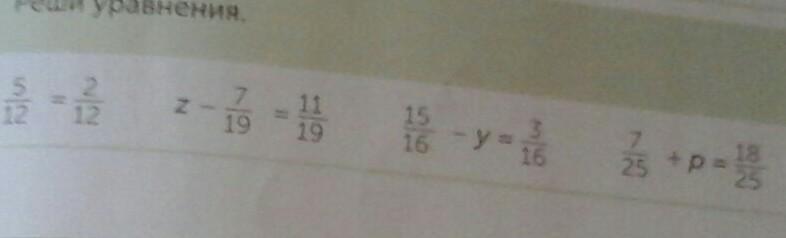 Реши уравнения.
5/12 = 2/12 z − 7/19 = 11/19 15/16 − y = 3/16 7/25 + p = 18/25